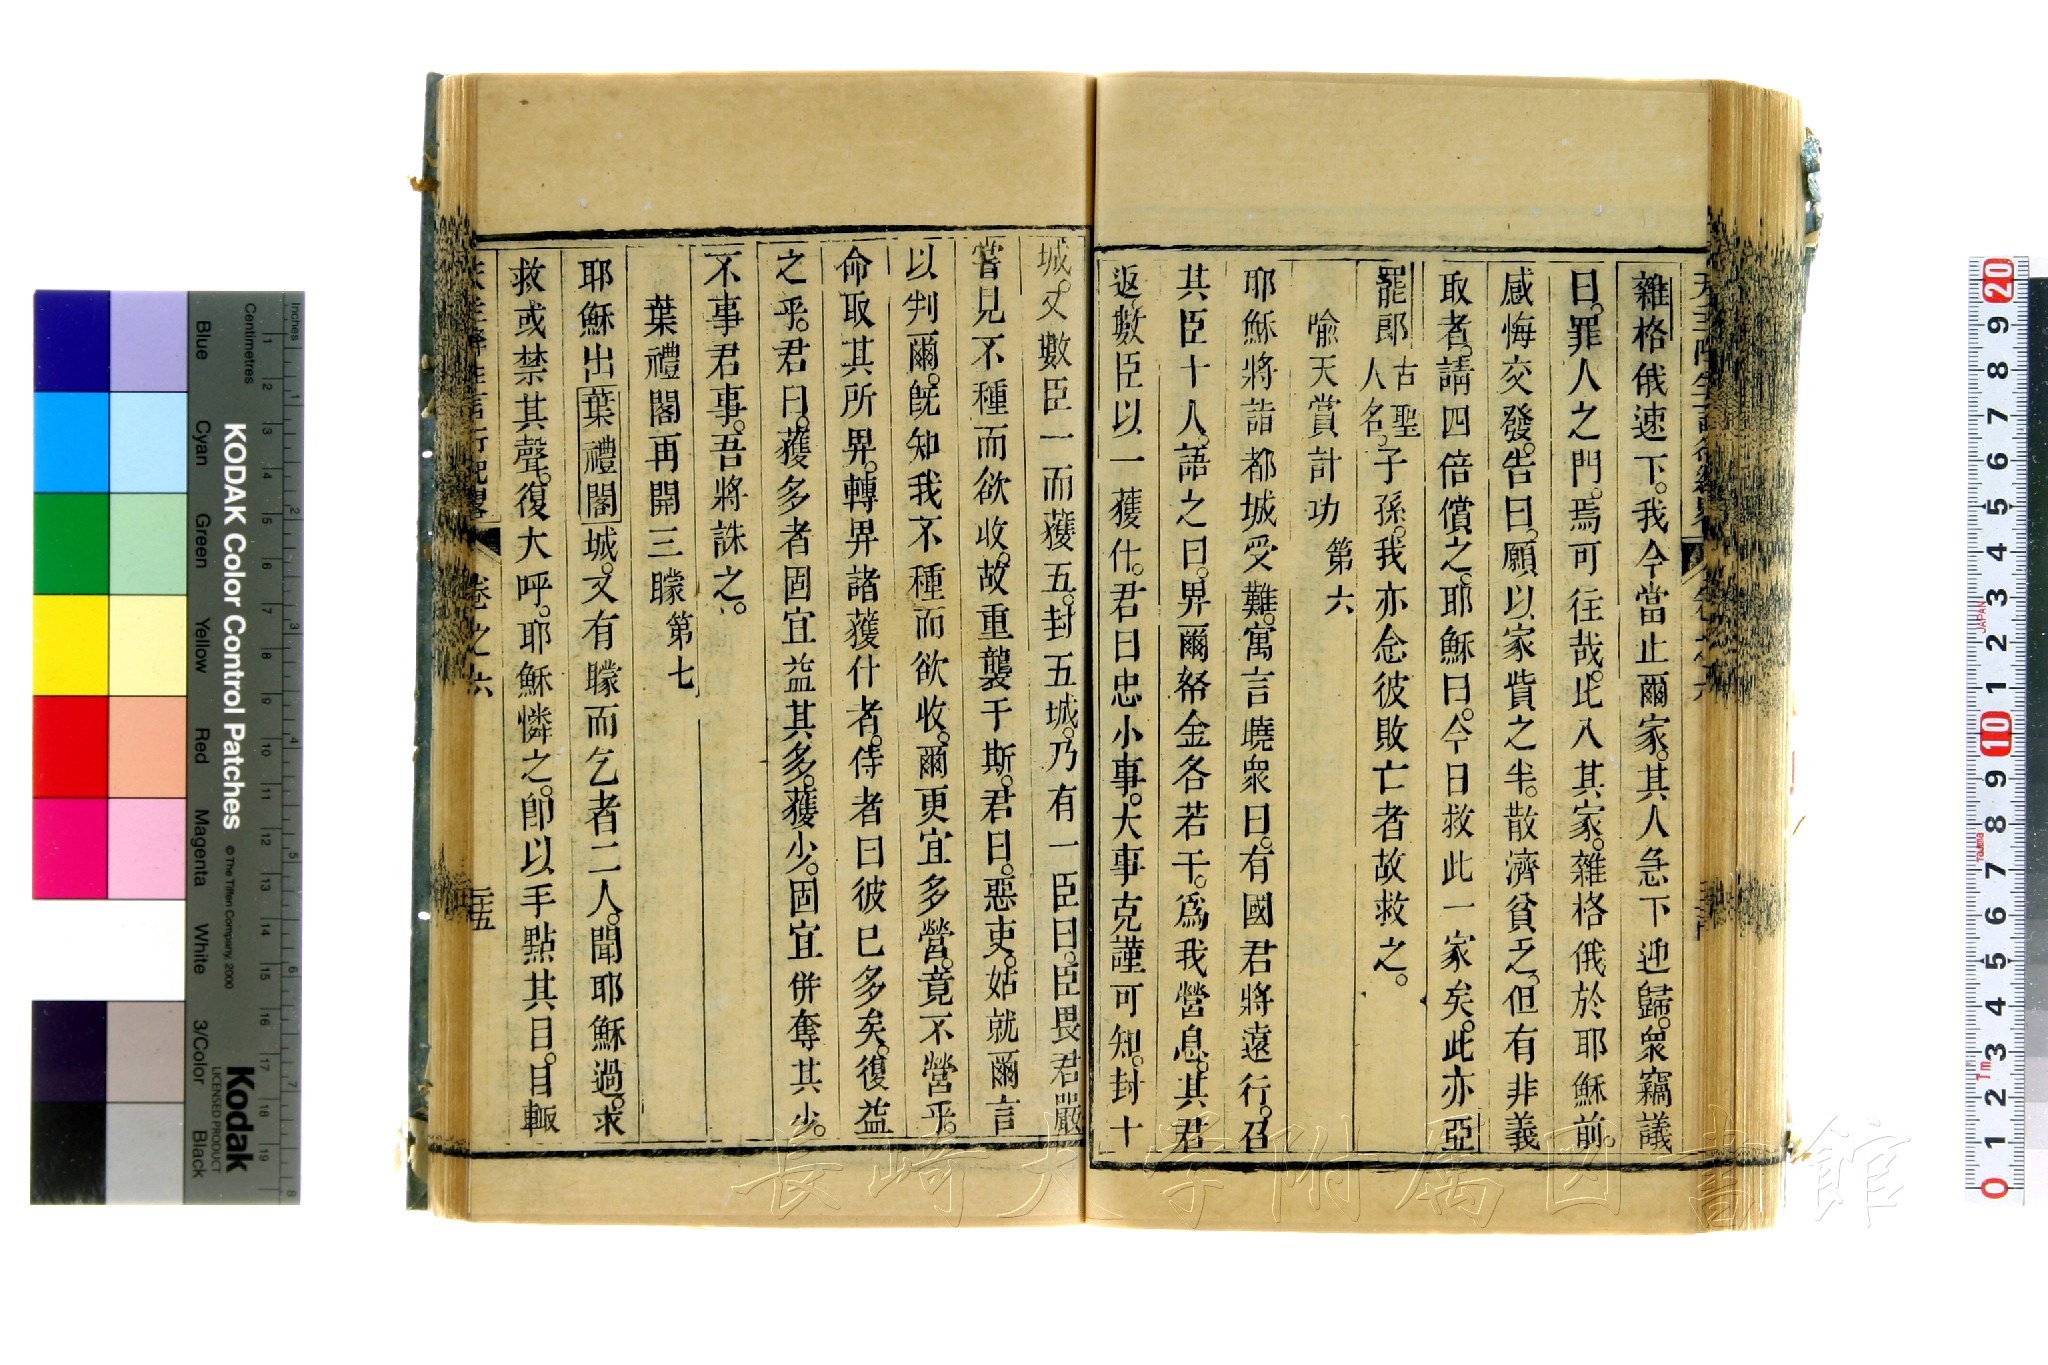 雜格俄速下。我今當止爾家。其人急下迎歸。衆竊議
曰。罪人之門。焉可往哉。比入其家。雜格俄於耶穌前。
感悔交發。告曰。願以家貲之半。散濟貧乏。但有非義
取者。請四倍償之。耶穌曰。今日救此一家矣。此亦亞
罷郎古聖人名。子孫。我亦念彼敗亡者故救之。
喻天賞計功 第六
耶穌將詣都城受難。寓言曉衆曰。有國君將遠行。召
其臣十人。語之曰。畀爾帑金各若干。爲我營息。其君
返。數臣以一獲什。君曰忠小事。大事克謹可知。封十
城。又數臣一而獲五。封五城。乃有一臣曰。臣畏君嚴
嘗見不種而欲收。故重襲于斯。君曰。惡吏。姑就爾言
以判爾。旣知我不種而欲收。爾更宜多營。竟不營乎。
命取其所畀。轉畀諸獲什者。侍者曰彼已多矣。復益
之乎。君曰。獲多者固宜益其多。獲少。固宜併奪其少。
不事君事。吾將誅之。
葉禮閣再開三矇 第七
耶穌出葉禮閣城。又有矇而乞者二人。聞耶穌過。求
救或禁其聲。復大呼。耶穌憐之。卽以手點其目。目輙
天主降生言行紀畧 卷之六 三十五
KODAK Color Control Patches
© The Tiffen Company, 2000
Kodak
LICENSED PRODUCT
Inches
Centimetres
Blue
Cyan
Green
Yellow
Red
Magenta
White
3/Color
Black
長崎大学附属図書館